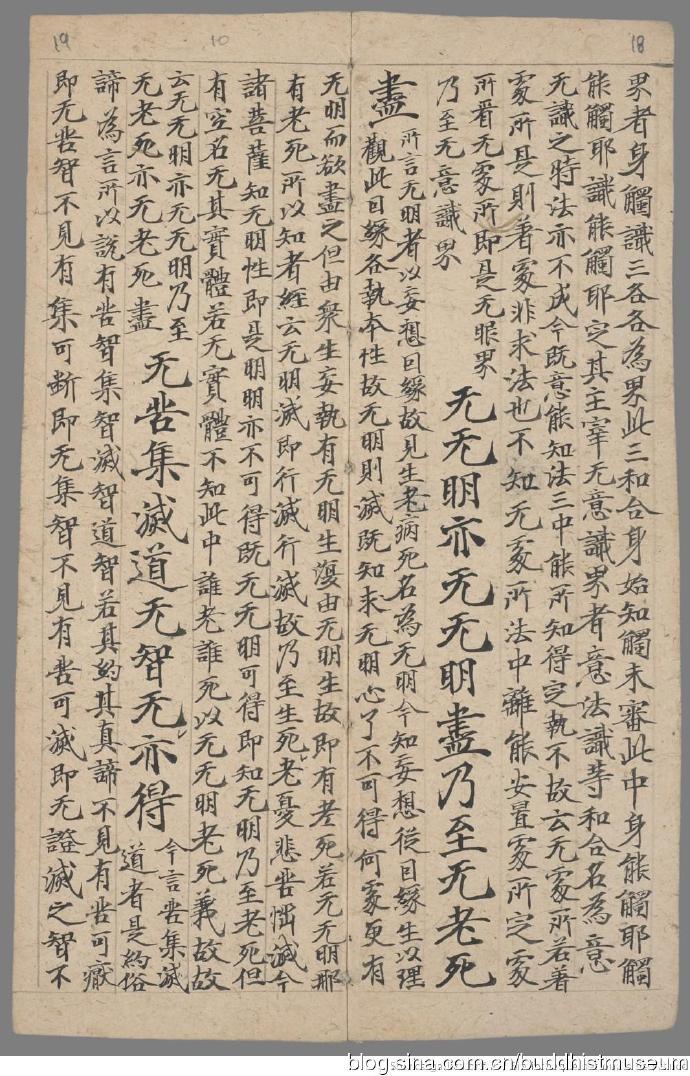 19 10 18
界者身觸識三各各為界此三和合身始知觸未審此中身能觸耶觸
能觸耶識能觸耶定其主宰无意識界者意法識等和合名為意
无識之時法亦不成今既意能知法三中能所知得定執不故云无處所若著
處所是則著處非求法也不知无處所法中離能安置處所定處
所看无處所即是无眼界
乃至无意識界
无无明亦无无明盡乃至无老死
盡
所言无明者以妄想因緣故見生老病死名為无明今知妄想從因緣生以理
觀此因緣各執本性故无明則滅既知未无明心了不可得何處更有
无明而欲盡之但由衆生妄執有无明生復由无明生故即有老死若无无明那
有老死所以知者經云无明滅即行滅行滅故乃至生死老憂悲苦惱滅今
諸菩薩知无明性即是明明亦不可得既无无明可得即知无明乃至老死但
有空名无其實體若无實體不知此中誰老誰死以无无明老死義故故
云无无明亦无无明乃至
无老死亦无老死盡
无苦集滅道无智无亦得
今言苦集滅
道者是約俗
諦為言所以說有苦智集智滅智道智若其約其真諦不見有苦可厭
即无苦智不見有集可断即无集智不見有苦可滅即无證滅之智不
blog.sina.com.cn/buddhistmuseum